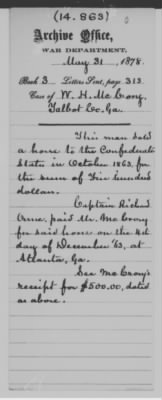 (14.863)
Archive Office,
WAR DEPARTMENT.
May 31, 1878.
Book 3 Letters Sent, page 313.
Case of W. H. McCrory,
Talbot Co. Ga.
This man sold
a horse to the Confederate
State in October 1863, for
the sum of Five hundred
dollars.
Captain Richard
Orme, paid Mr. McCrory
for said horse on the 4th
day of December '63, at
Atlanta, Ga.
See McCrory's
receipt for $500.00, dated
as above.